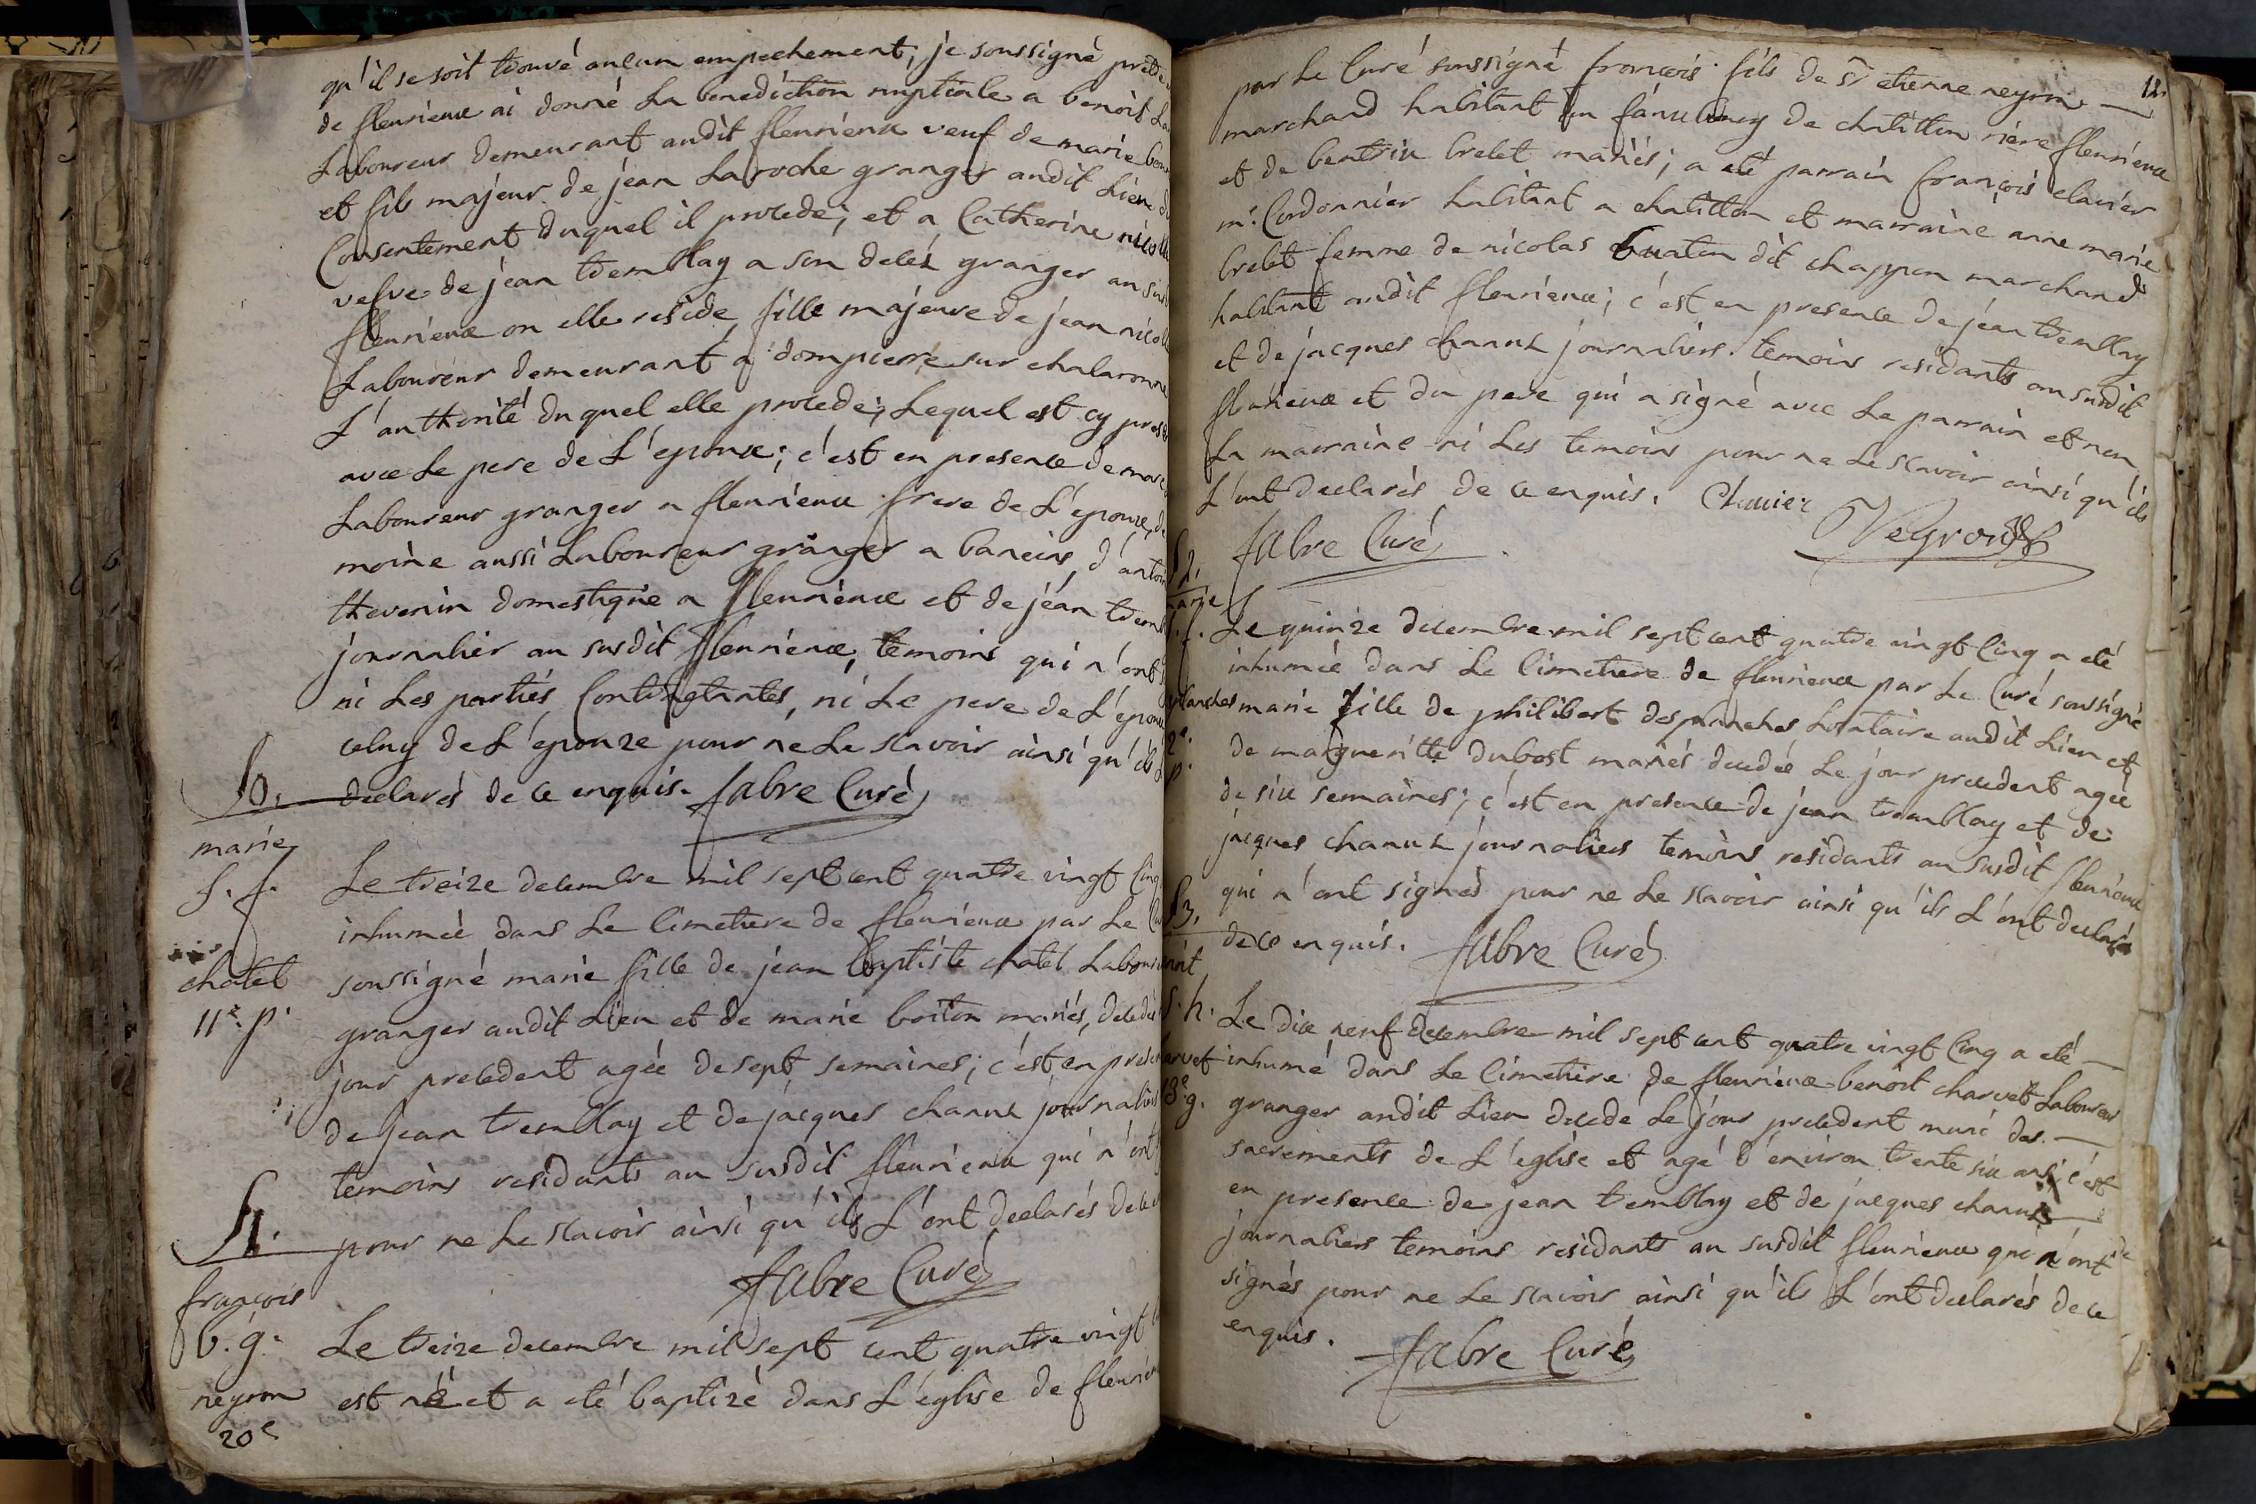 qu'il se soit trouvé aucun empechement, je soussigné pretre
de fleurieux ai donné La benediction nuptiale a benoit La
Laboureur demeurant audit fleurieux veuf de marie
et fils majeur de jean Laroche granger audit Lieu du
Consentement duquel il procede, et a Catherine nicolle
vefve de jean tremblay a son deces granger au susd
fleurieux ou elle reside, fille majeure de jean nicolle
Laboureur demeurant a dompierre sur chalaronne
L'authorité du quel elle procede; Lequel est cy pres
avec Le pere de L'epoux; c'est en presence de marc
Laboureur granger a fleurieux frere de L'epouze, de
moine aussi Laboureur granger a baneins, d'antoi
thevenin domestique a fleurieux et de jean trem
journalier au susdit fleurieux, temoins qui n'ont
ni Les parties Contractantes, ni Le pere de L'epoux
celuy de L'epouze pour ne Le scavoir ainsi qu'ils L
declarés de ce enquis. fabre Curé
50.
marie
s. f.
chatel
11e. p.
Le treize decembre mil sept cent quatre vingt Cinq
inhumée dans Le Cimetiere de fleurieux par Le Cu
soussigné marie fille de jean baptiste chatel Labour
granger audit Lieu et de marie boiton mariés, decedée
jour precedent agée de sept semaines; c'est en presen
de jean tremblay et de jacques chanut journaliers
temoins residants au susdit fleurieux qui n'ont
pour ne Le scavoir ainsi qu'ils L'ont declarés de ce
fabre Curé
51.
françois
b. g.
neyron
20e
Le treize decembre mil sept cent quatre vingt
est né et a eté baptizé dans L'eglise de fleurieu
12.
par Le Curé soussigné françois fils de sr etienne neyron
marchand habitant un faux bourg de chatillon riere fleurieux
et de beatrix brelet mariés; a eté parrain françois clavier
mr. Cordonnier habitant a chatillon et marraine anne marie
brelet femme de nicolas buaton dit chappon marchand
habitant audit fleurieux; c'est en presence de jean tremblay
et de jacques chanut journaliers temoins residants au susdit
fleurieux et du pere qui a signé avec Le parrain et non
La marraine ni Les temoins pour ne Le scavoir ainsi qu'ils
L'ont declarés de ce enquis. Clavier
fabre Curé Neyron
52.
marie
s. f.
planches
12e.
p.
Le quinze decembre mil sept cent quatre vingt Cinq a eté
inhumée dans Le Cimetiere de fleurieux par Le Curé soussigné
marie fille de philibert desplanches Locataire audit Lieu et
de margueritte dubost mariés decedée Le jour precedent agée
de six semaines; c'est en presence de jean tremblay et de
jacques chanut journaliers temoins residants au susdit fleurieux
qui n'ont signés pour ne Le scavoir ainsi qu'ils L'ont declarés
de ce enquis. fabre Curé
53.
noit
s. h.
arvet
13e. g.
Le dix neuf decembre mil sept cent quatre vingt Cinq a eté
inhumé dans Le Cimetiere de fleurieux benoit charvet Laboureur
granger audit Lieu decedé Le jour precedent muni des
sacrements de L'eglise et agé d'environ trente six ans; c'est
en presence de jean tremblay et de jacques chanut
journaliers temoins residants au susdit fleurieux qui n'ont
signés pour ne Le scavoir ainsi qu'ils L'ont declarés de ce
enquis. fabre Curé